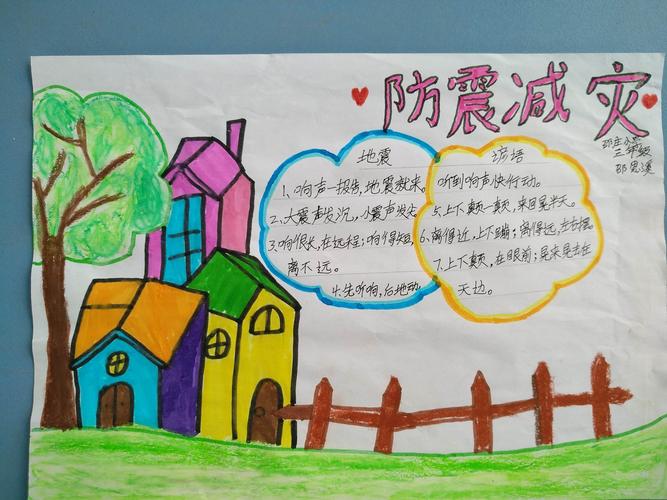 防震减灾
三年级
地震
1、响声一报告,地震就来。
2、大震声发沉,小震声发尖
3、响很长,在远程;响得短,
离不远。
4、先听响,后地动,
谚语
听到响声快行动。
5、上下颠一颠,来回晃半天。
6、离得近,上下蹦;离得远,左右摆。
7、上下颠,在眼前;晃来晃去在
天边。